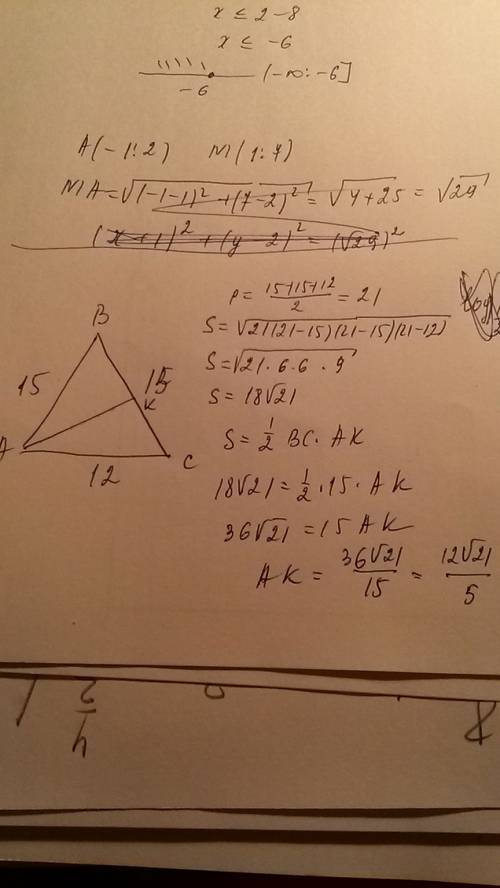 x ≤ 2-8
x ≤ -6
-6 (-∞: -6]
A(-1:2) M(1:7)
MA=√(-1-1)²+(7-2)² = √4+25 = √29
(x+1)²+(y-2)²=(√29)²
P= 15+15+12/2 = 21
S=√21(21-15)(21-15)(21-12)
S=√21·6·6·9
S= 18√21
S= 1/2 BC· AK
18√21= 1/2 ·15· AK
36√21 = 15 AK
AK = 36√21/15 = 12√21/5
B
15
15
K
A
12
C